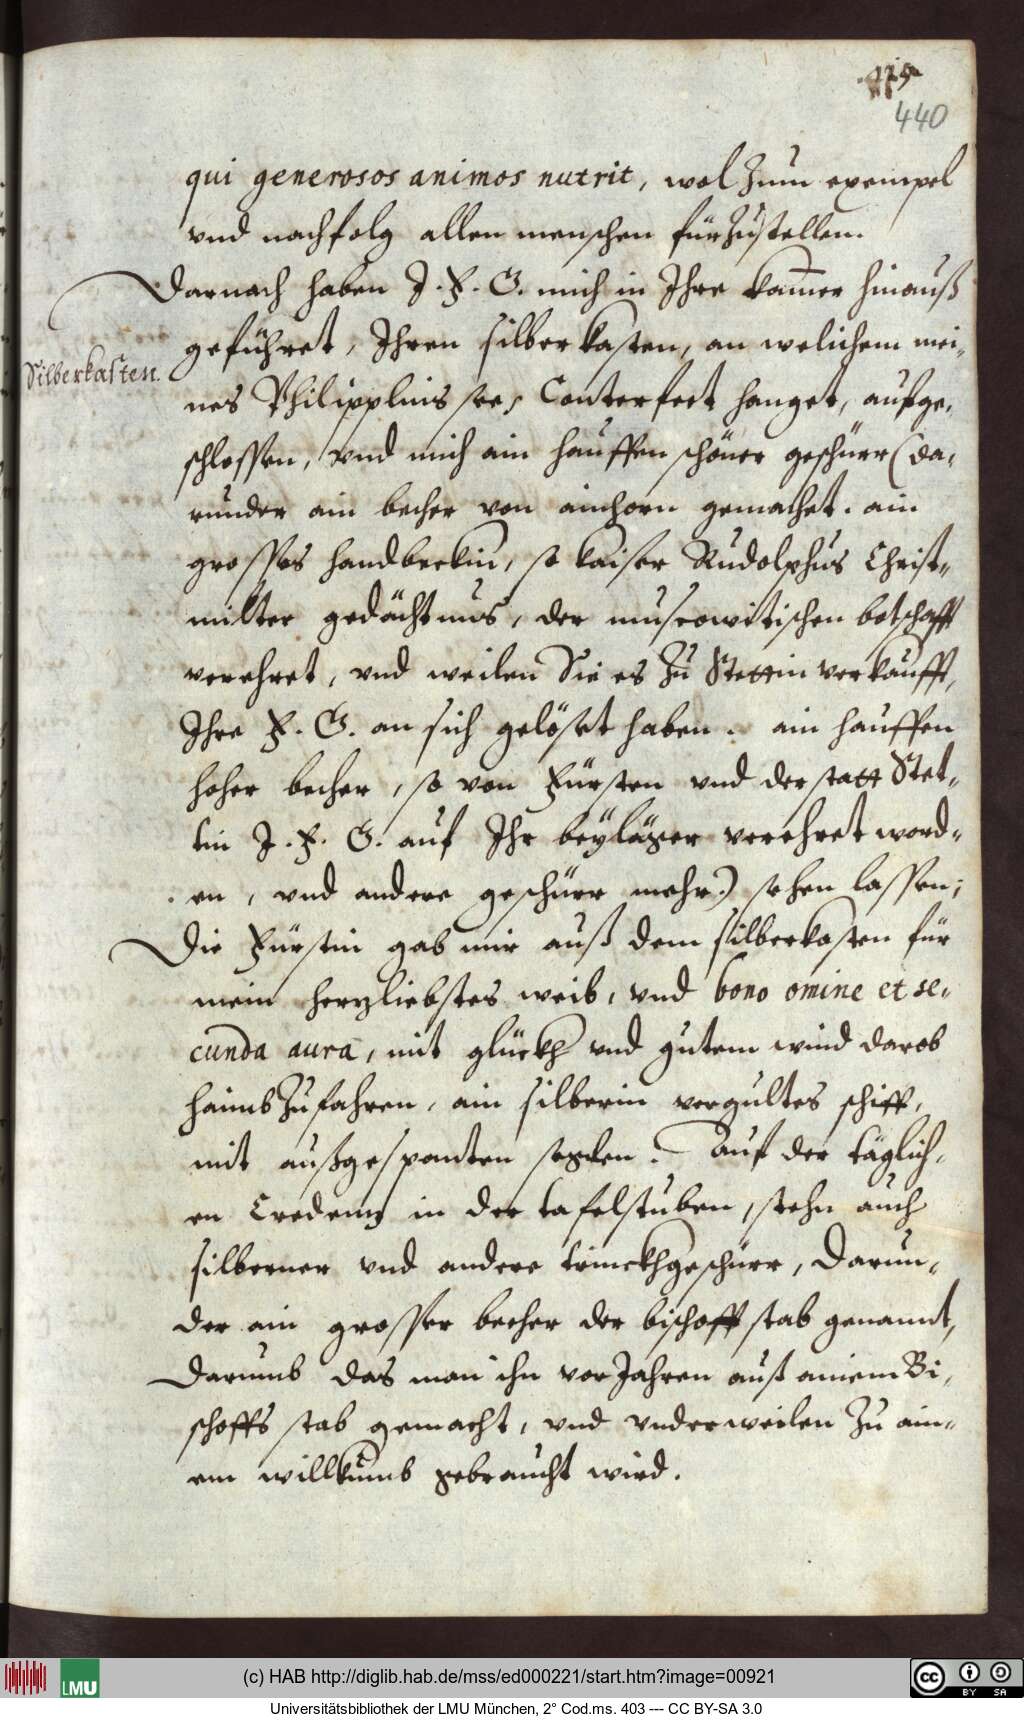 440
qui generosos animos nutrit, wol zum exempel
vnd nachfolg allen menschen fürzustellen.
Darnach haben I. F. G. mich in Ihre kam̄er hinauß
geführet, Ihren silberkasten, an welichem mei,
Silberkasten.
nes Philipplins Conterfect hanget, aufge,
schlossen, vnd mich ain hauffen schöner geschürr (da,
runder ain becher von ainhorn gemachet. ain
grosses handbeckin, so kaiser Rudolphus Christ-
milter gedächtnus, der muscowitischen botschafft
verehret, vnd weilen Sie es zu Stettin verkaufft,
Ihre F. G. an sich gelöset haben. ain hauffen
hoher becher, so von Fürsten vnd der statt Stet-
tin I. F. G. auf Ihr beyläger verehret word-
en, vnd andere geschürr mehr) sehen lassen;
Die Fürstin gab mir auß dem silberkasten für
mein herzliebstes weib, vnd bono omine et se,
cunda aura, mit glückh vnd gutem wind darob
haimb zufahren, ain silberin vergultes schiff,
mit außgespanten seglen. Auf der täglich,
en Credenz in der tafelstuben, stehn auch
silberner vnd andere trinckhgeschürr, Darun-
der ain grosser becher der bischoff stab genannt,
Darumb das man ihn vor Jahren auß ainem Bi,
schoffs stab gemacht, vnd vnderweilen zu ain-
em willkumb gebraucht wird.
(c) HAB http://diglib.hab.de/mss/ed000221/start.htm?image=00921
LMU
cc BY SA
Universitätsbibliothek der LMU München, 2° Cod.ms. 403 --- CC BY-SA 3.0